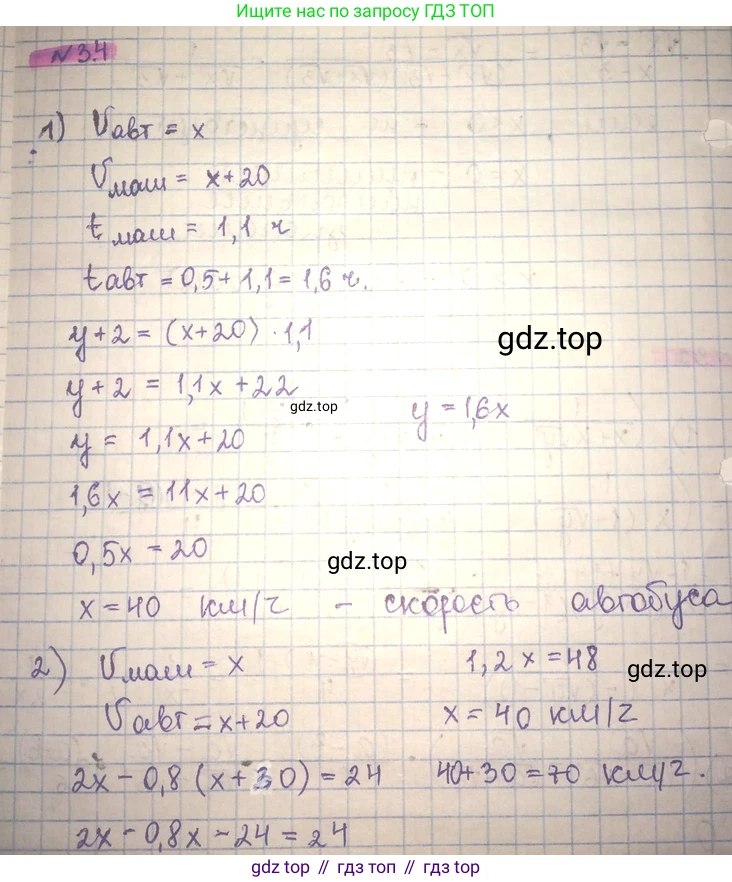 Ищите наш сайт по запросу ГДЗ ТОП
N 3.4
1) Vавт = x
Vмаш = x+20
tмаш = 1,1 ч
tавт = 0,5 + 1,1 = 1,6 ч.
y+2 = (x+20) · 1,1
gdz.top
y+2 = 1,1x + 22
gdz.top
y = 1,6x
y = 1,1x+20
1,6x = 11x+20
0,5x = 20
gdz.top
x = 40 км/ч - скорость автобуса
2) Vмаш = x
1,2x = 48
gdz.top
Vавт = x+20
x = 40 км/ч
2x - 0,8 (x+30) = 24
40+30 = 70 км/ч.
2x - 0,8x - 24 = 24
gdz.top // гдз.топ // gdz.top // гдз.топ